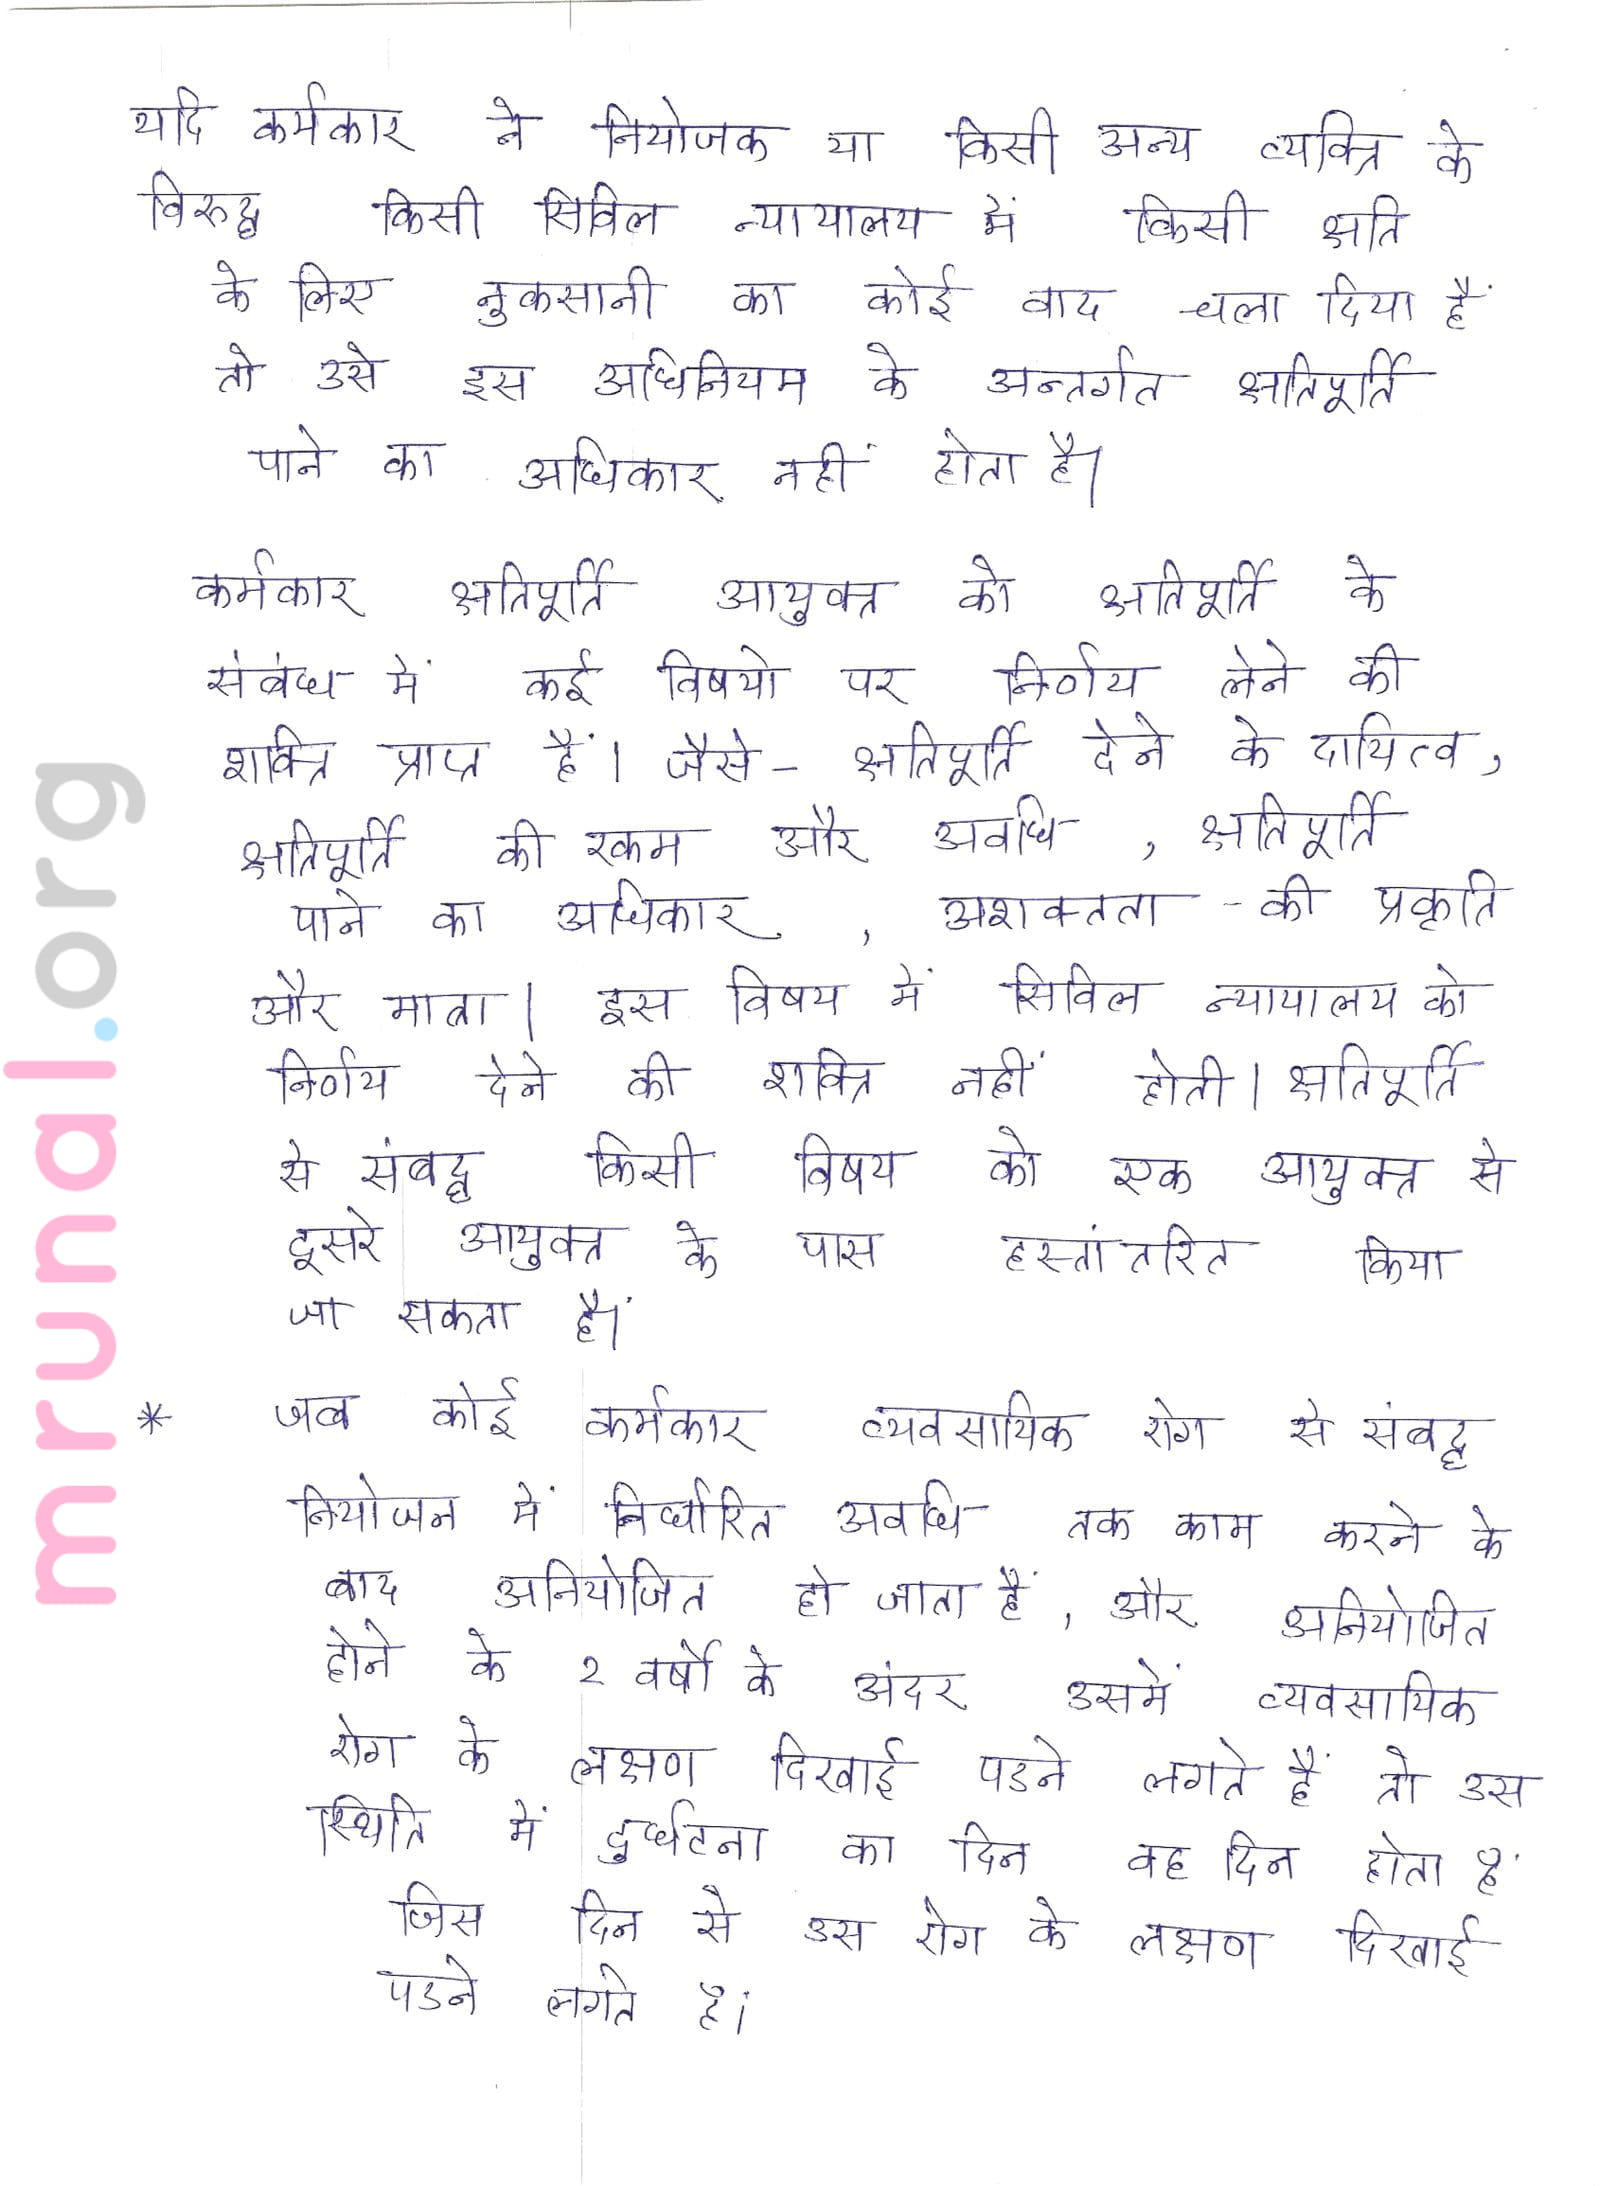 यदि कर्मकार ने नियोजक या किसी अन्य व्यक्ति के
विरुद्ध किसी सिविल न्यायालय में किसी क्षति
के लिए नुकसानी का कोई वाद चला दिया हैं
तो उसे इस अधिनियम के अन्तर्गत क्षतिपूर्ति
पाने का अधिकार नहीं होता है।
कर्मकार क्षतिपूर्ति आयुक्त को क्षतिपूर्ति के
संबंध में कई विषयो पर निर्णय लेने की
शक्ति प्राप्त हैं। जैसे - क्षतिपूर्ति देने के दायित्व,
क्षतिपूर्ति की रकम और अवधि , क्षतिपूर्ति
पाने का अधिकार , अशक्तता - की प्रकृति
और मात्रा। इस विषय में सिविल न्यायालय को
निर्णय देने की शक्ति नहीं होती। क्षतिपूर्ति
से संबद्ध किसी विषय को एक आयुक्त से
दूसरे आयुक्त के पास हस्तांतरित किया
जा सकता हैं।
* जब कोई कर्मकार व्यवसायिक रोग से संबद्ध
नियोजन में निर्धारित अवधि तक काम करने के
बाद अनियोजित हो जाता हैं, और अनियोजित
होने के २ वर्षो के अंदर उसमें व्यवसायिक
रोग के लक्षण दिखाई पडने लगते हैं तो उस
स्थिति में दुर्घटना का दिन वह दिन होता हैं
जिस दिन से उस रोग के लक्षण दिखाई
पडने लगते हैं।
mrunal.org